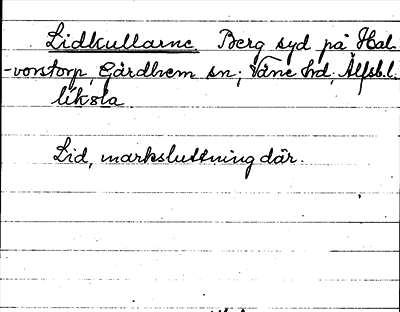 Lidkullarne. Berg syd på Hal-
-vorstorp, Gärdhem sn; Väne hd. Älfsb.l.
Lid, marksluttning där.